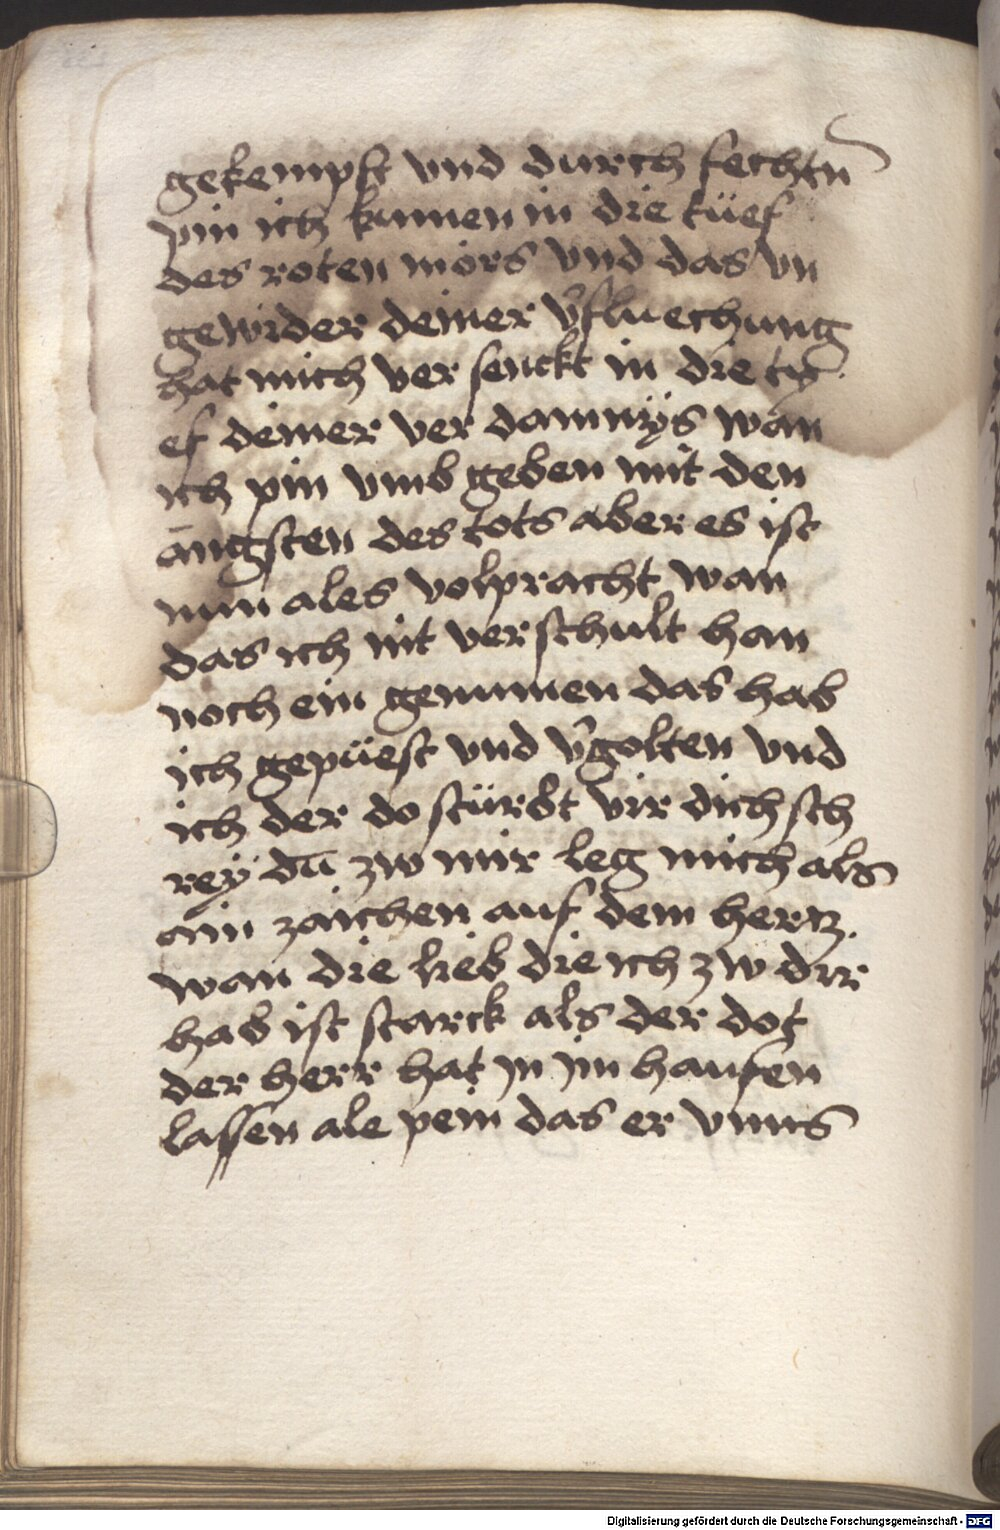 gekempft vnd durch fechtn̄
pin ich kumen in die tüef
des roten mörs vnd das vn
gewider deiner v̄fluechung
hat mich ver senckt in die ty
ef deiner ver damnÿs wan
ich pin vmb geben mit den
āngsten des tots aber es ist
nun ales volpracht wan
das ich nit verschult han
noch ein genumen das hab
ich gepüest vnd v̄golten vnd
ich der do stürbt vir dich sch
reÿ dū zw mir leg mich als
ain zaichen auf dem hertz.
wan die lieb die ich zw dir
hab ist starck als der dot
der herr hat in im haufen
lassen ale pein das er vnns
Digitalisierung gefördert durch die Deutsche Forschungsgemeinschaft - DFG